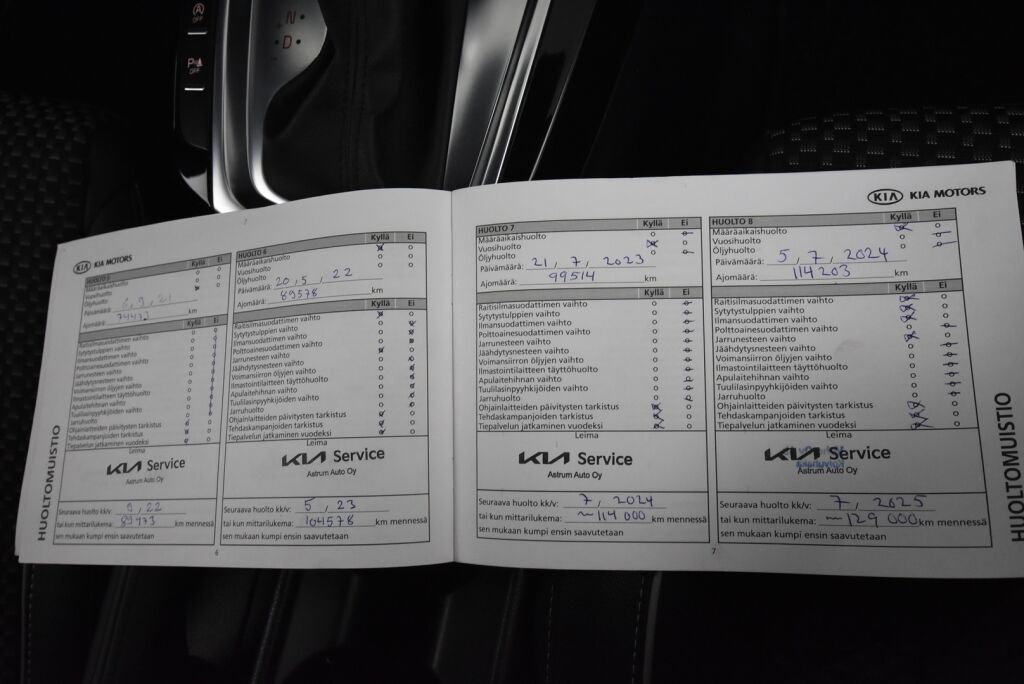 OFF
N
D
P
OFF
KIA KIA MOTORS
HUOLTOMUISTIO
Kyllä Ei
Määräaikaishuolto
Vuosihuolto
Öljyhuolto
Päivämäärä: 9, 21
Ajomäärä: km
Kyllä Ei
Raitisilmasuodattimen vaihto
Sytytystulppien vaihto
Ilmansuodattimen vaihto
Polttoainesuodattimen vaihto
Jarrunesteen vaihto
Jäähdytysnesteen vaihto
Voimansiirron öljyjen vaihto
Ilmastointilaitteen täyttöhuolto
Apulaitehihnan vaihto
Tuulilasinpyyhkijöiden vaihto
Jarruhuolto
Ohjainlaitteiden päivitysten tarkistus
Tehdaskampanjoiden tarkistus
Tiepalvelun jatkaminen vuodeksi
Leima
KIA Service
Astrum Auto Oy
Seuraava huolto kk/v: 9, 22
tai kun mittarilukema: 89473 km mennessä
sen mukaan kumpi ensin saavutetaan
6
HUOLTO 6 Kyllä Ei
Määräaikaishuolto
Vuosihuolto
Öljyhuolto
Päivämäärä: 20, 5, 22
Ajomäärä: 89578 km
Kyllä Ei
Raitisilmasuodattimen vaihto
Sytytystulppien vaihto
Ilmansuodattimen vaihto
Polttoainesuodattimen vaihto
Jarrunesteen vaihto
Jäähdytysnesteen vaihto
Voimansiirron öljyjen vaihto
Ilmastointilaitteen täyttöhuolto
Apulaitehihnan vaihto
Tuulilasinpyyhkijöiden vaihto
Jarruhuolto
Ohjainlaitteiden päivitysten tarkistus
Tehdaskampanjoiden tarkistus
Tiepalvelun jatkaminen vuodeksi
Leima
KIA Service
Astrum Auto Oy
Seuraava huolto kk/v: 5, 23
tai kun mittarilukema: 104578 km mennessä
sen mukaan kumpi ensin saavutetaan
HUOLTO 7 Kyllä Ei
Määräaikaishuolto
Vuosihuolto
Öljyhuolto
Päivämäärä: 21, 7, 2023
Ajomäärä: 99514 km
Kyllä Ei
Raitisilmasuodattimen vaihto
Sytytystulppien vaihto
Ilmansuodattimen vaihto
Polttoainesuodattimen vaihto
Jarrunesteen vaihto
Jäähdytysnesteen vaihto
Voimansiirron öljyjen vaihto
Ilmastointilaitteen täyttöhuolto
Apulaitehihnan vaihto
Tuulilasinpyyhkijöiden vaihto
Jarruhuolto
Ohjainlaitteiden päivitysten tarkistus
Tehdaskampanjoiden tarkistus
Tiepalvelun jatkaminen vuodeksi
Leima
KIA Service
Astrum Auto Oy
Seuraava huolto kk/v: 7, 2024
tai kun mittarilukema: ~114 000 km mennessä
sen mukaan kumpi ensin saavutetaan
7
KIA KIA MOTORS
HUOLTO 8 Kyllä Ei
Määräaikaishuolto
Vuosihuolto
Öljyhuolto
Päivämäärä: 5, 7, 2024
Ajomäärä: 114203 km
Kyllä Ei
Raitisilmasuodattimen vaihto
Sytytystulppien vaihto
Ilmansuodattimen vaihto
Polttoainesuodattimen vaihto
Jarrunesteen vaihto
Jäähdytysnesteen vaihto
Voimansiirron öljyjen vaihto
Ilmastointilaitteen täyttöhuolto
Apulaitehihnan vaihto
Tuulilasinpyyhkijöiden vaihto
Jarruhuolto
Ohjainlaitteiden päivitysten tarkistus
Tehdaskampanjoiden tarkistus
Tiepalvelun jatkaminen vuodeksi
Leima
KIA Service
Astrum Auto Oy
Seuraava huolto kk/v: 7, 2025
tai kun mittarilukema: ~129 000 km mennessä
sen mukaan kumpi ensin saavutetaan
HUOLTOMUISTIO